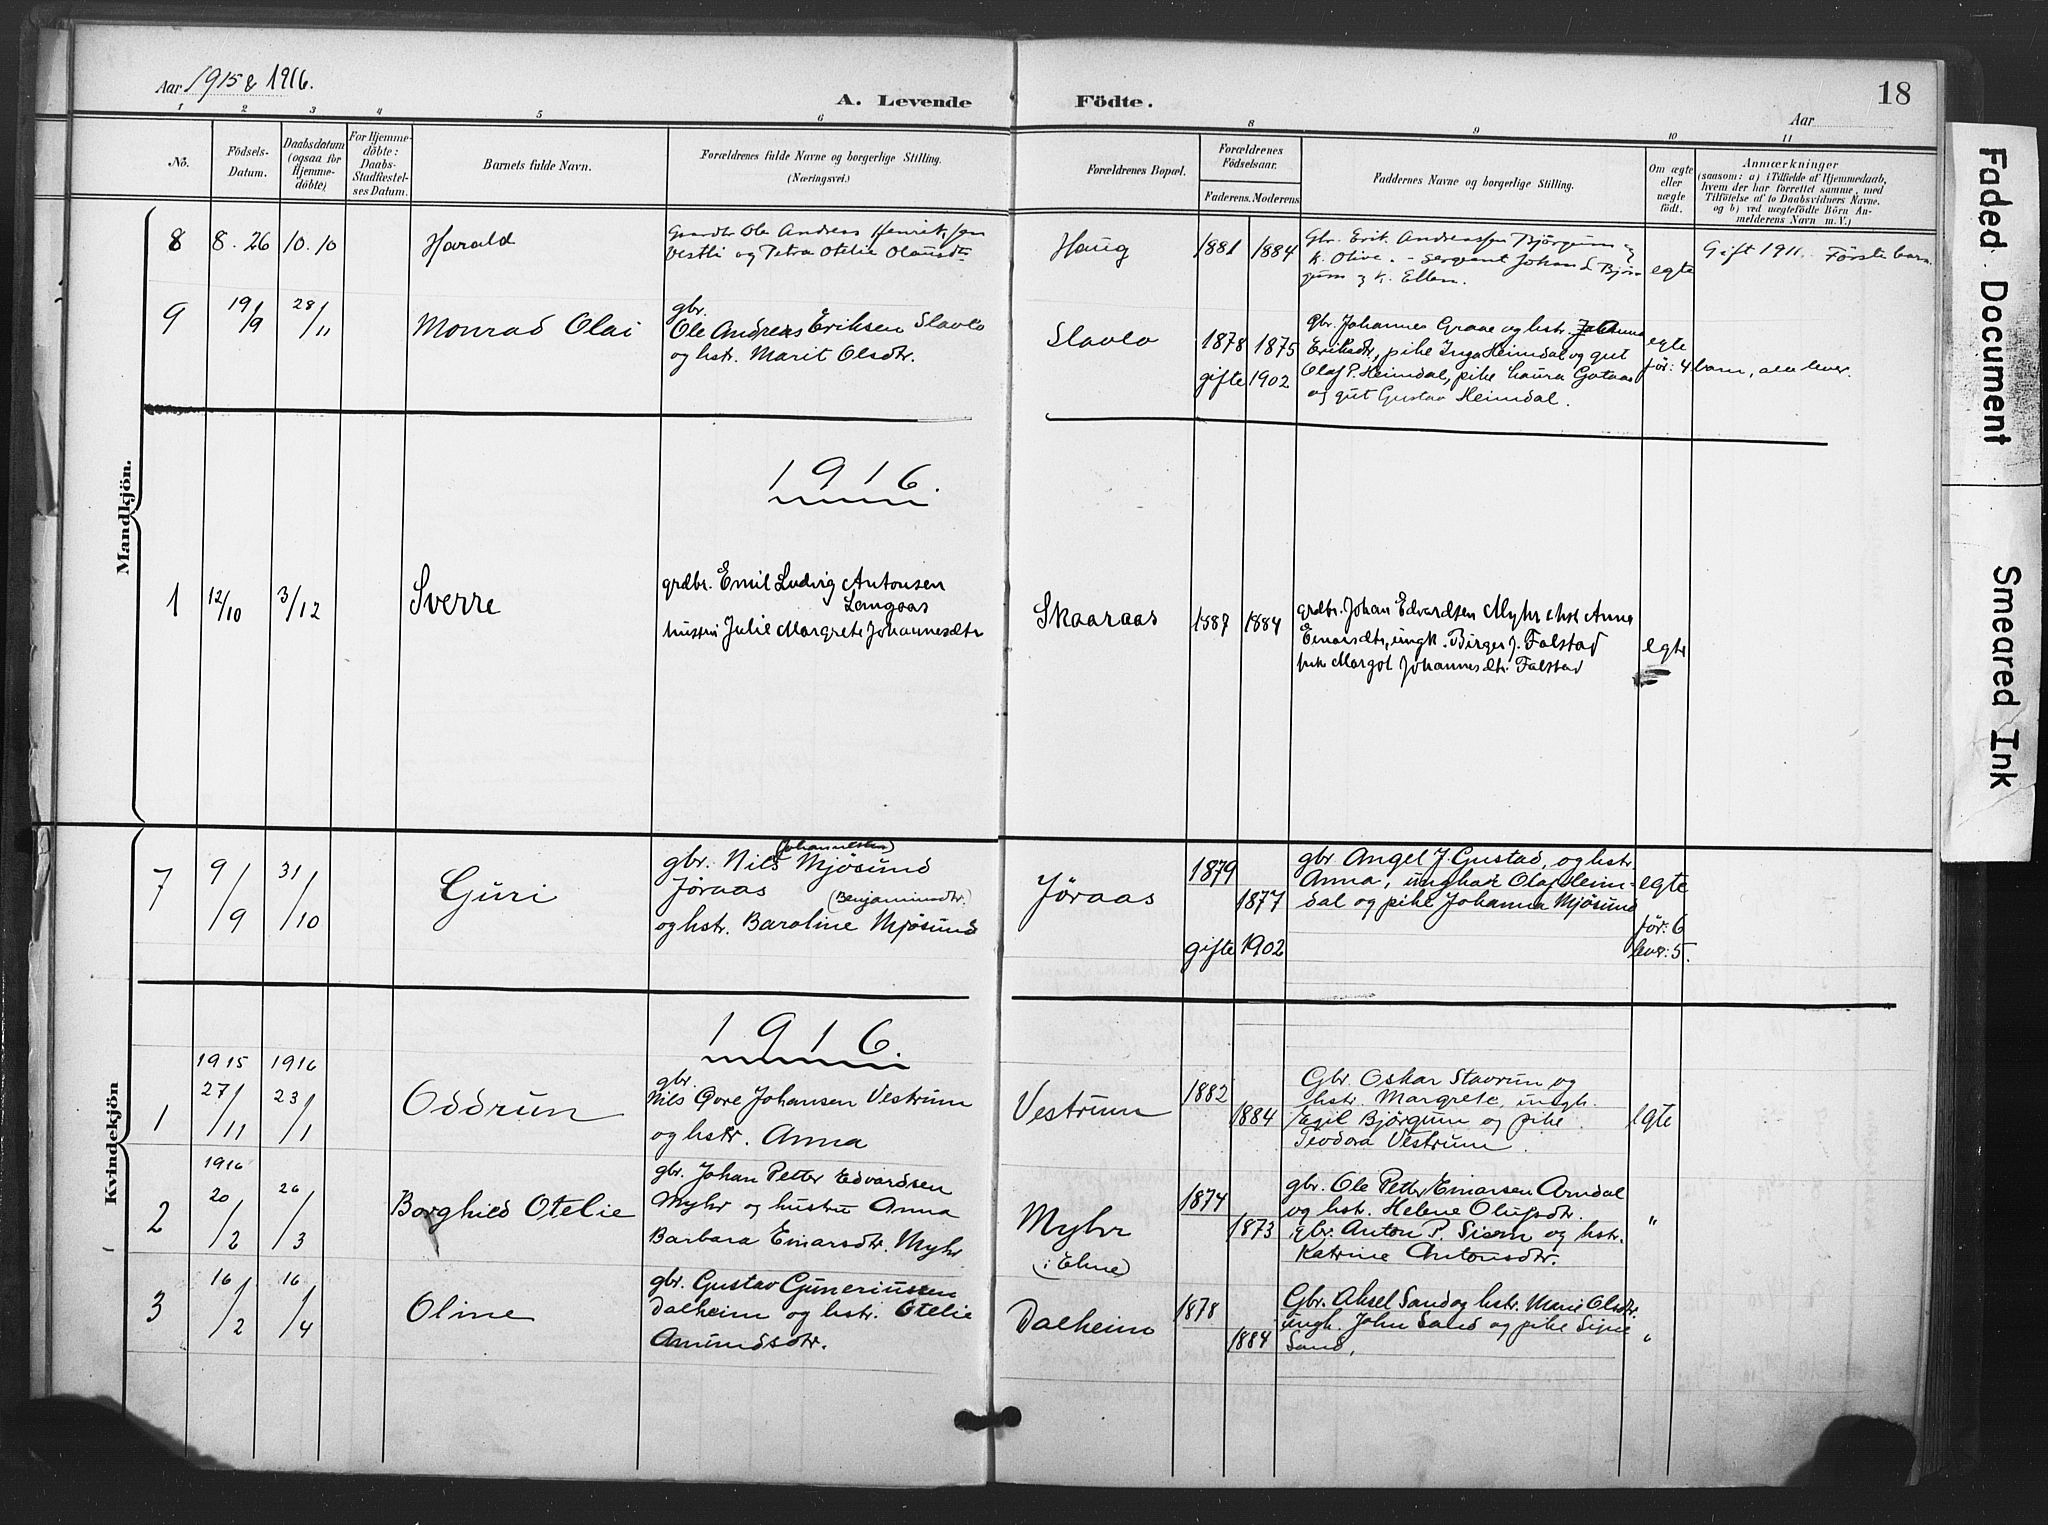 Aar 1915 & 1916.
A. Levende Födte.
18
Aar
1 2 3 4 5 6 8 9 10 11
No.
Födsels-
Datum.
Daabsdatum
(ogsaa for
Hjemme-
döbte)
For Hjemme-
döbte:
Daabs-
Stadfæstel-
ses Datum.
Barnets fulde Navn.
Forældrenes fulde Navne og borgerlige Stilling.
(Næringsvei.)
Forældrenes Bopæl.
Forældrenes
Födselsaar.
Faderens. Moderens
Faddernes Navne og borgerlige Stilling.
Om ægte
eller
uægte
födt.
Anmærkninger
(saasom: a) i Tilfælde af Hjemmedaab,
hvem der har forrettet samme, med
Tilföielse af to Daabsvidners Navne.
og b) ved uægtefödte Börn An-
melderens Navn m. V.)
Mandkjön.
8
8. 26
10. 10
Harald
Gaardbr Ole Andreas Henriksen
Vestli og Petra Otelie Olausdtr
Haug
1881 1884
Gbr. Erik Andreassen Bjørgum og
K. Olive. - Sergeant Johan L. Bjør-
gum og K. Ellen.
egte
Gift 1911. Første barn.
9
19/9
28/11
Monrad Olai
gbr.
Ole Andreas Eriksen Slavlo
og hstr. Marit Olsdtr.
Slavlo
1878 1875
gifte 1902
Gbr. Johannes Graae og hstr. Johanna
Eriksdtr, pike Inga Heimdal og gut
Olaf P. Heimdal, pike Laura Gotaas
og gut Gustav Heimdal.
egte
før: 4 barn, alle lever.
1916.
1
12/10
3/12
Sverre
grdbr. Emil Ludvig Antonsen
Langaas
hustru Julie Margrete Johannesdtr
Skaaraas
1887 1884
grdbr. Johan Edvardsen Myhr & hst Anna
Einarsdtr, ungk. Birger J. Falstad
pike Margot Johannesdtr. Falstad
egte
7
9/9
31/10
Guri
gbr. Nils (Johannessen) Mjøsund
Jøraas (Benjaminsdtr.)
og hstr. Baroline Mjøsund
Jøraas
1879
1877
gifte 1902
gbr Angel J. Gustad, og hstr
Anna, ungkar Olaf Heim-
dal og pike Johanna Mjøsund
egte
før: 6
lever: 5.
Kvindekjön
1916.
1
1915
27/11
1916
23/1
Oddrun
gbr.
Nils Ove Johansen Vestrum
og hstr. Anna
Vestrum
1882
1884
Gbr. Oskar Stavrum og
hstr. Margrete, ungk.
Egil Bjørgum og pike
Teodora Vestrum.
egte
2
1916
20/2
26/3
Borghild Otelie
gbr. Johan Petter Edvardsen
Myhr og hustru Anna
Barbara Einarsdtr. Myhr
Myhr
(i Ekne)
1874
1873
gbr. Ole Petter Einarsen Arndal
og hst. Helene Olufsdtr.
gbr. Anton P. Siem og hstr.
Katrine Antonsdtr.
"
3
16/2
16/4
Oline
gbr. Gustav Guneriussen
Dalheim og hstr. Otelie
Amundsdtr.
Dalheim
1878
1884
Gbr. Aksel Sand og hstr. Marie Olsdtr.
ungk. John Sand og pike Signe
Sand.
"
Faded Document
Smeared Ink